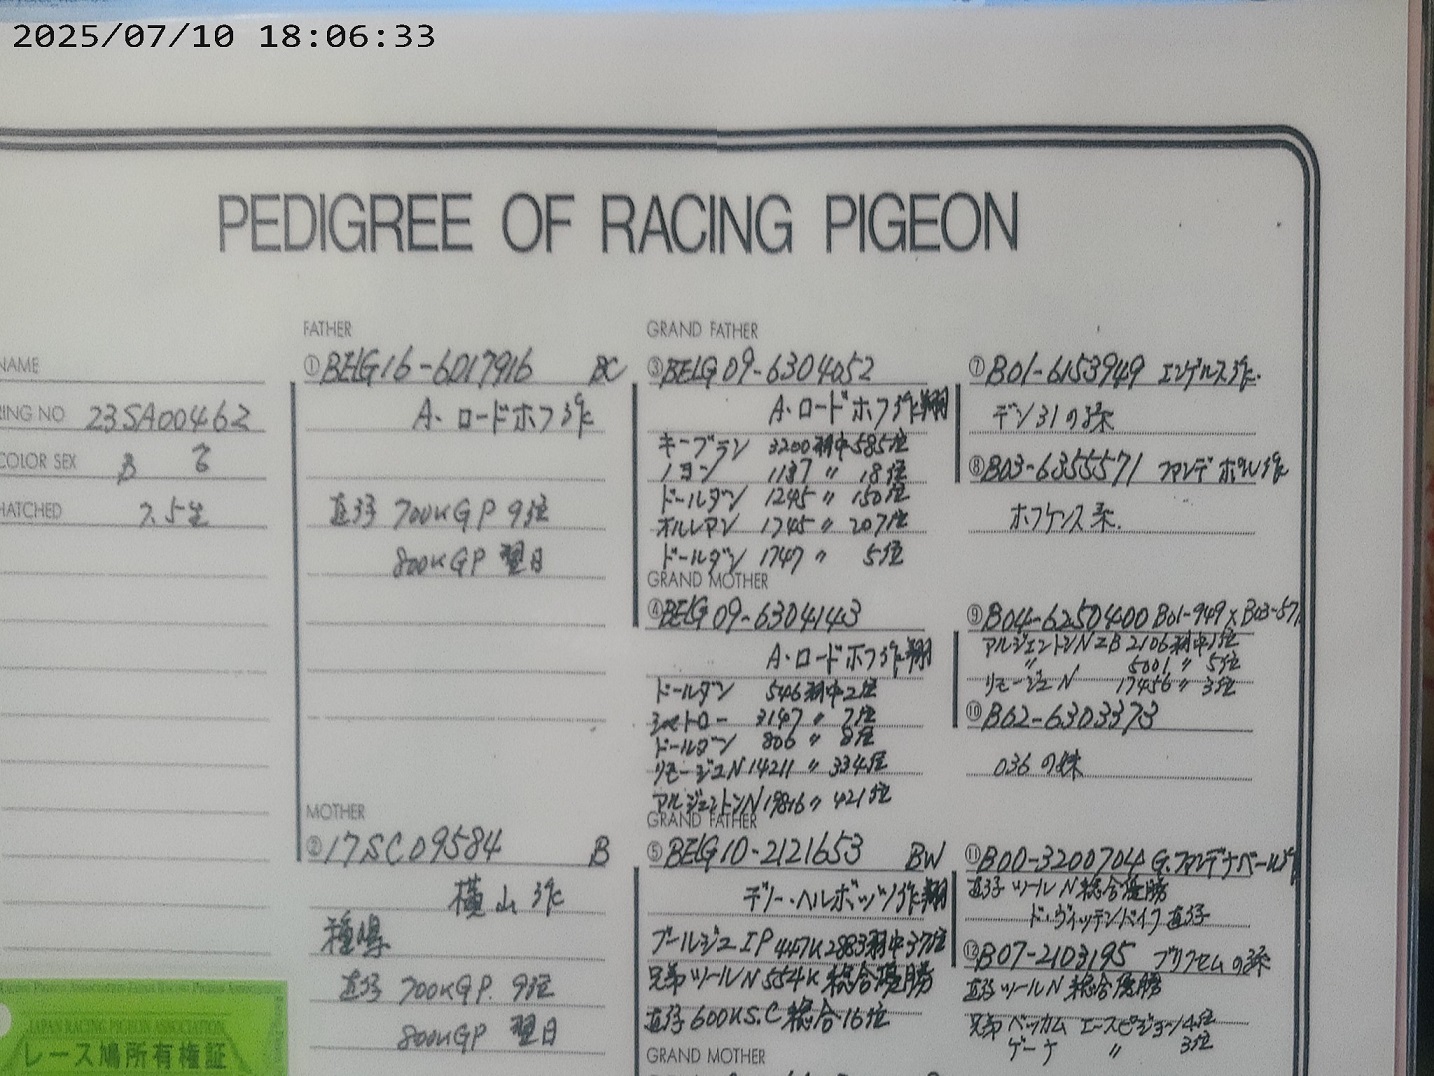 2025/07/10 18:06:33
PEDIGREE OF RACING PIGEON
NAME
RING NO 23SA00462
COLOR SEX B ♂
HATCHED 2.5生
FATHER
①BELG16-6017916 BC
A・ロードホフ作
直子 700KGP 9位
800KGP 翌日
MOTHER
②17SC09584 B
横山作
種鳩
直子 700KGP. 9位
800KGP 翌日
GRAND FATHER
③BELG09-6304052
A・ロードホフ作翔
キーブラン 3200羽中585位
ノヨン 1187 〃 18位
ドールダン 1245 〃 150位
オルレアン 1745 〃 207位
ドールダン 1747 〃 5位
GRAND MOTHER
④BELG09-6304143
A・ロードホフ作翔
ドールダン 546羽中2位
シャトロー 3147 〃 7位
ドールダン 806 〃 8位
リモージュN 14211 〃 334位
アルジェントンN 19816 〃 421位
GRAND FATHER
⑤BELG10-2121653 BW
デリー・ヘルボッツ作翔
ブールジュIP 447K 2883羽中37位
兄弟ツールN 554K 総合優勝
直子600KS.C 総合16位
GRAND MOTHER
⑦B01-6153949 エンゲルス作.
デン31の孫
⑧B03-6355571 ファンデ 作
ホフケンス系.
⑨B04-6250400 B01-949×B03-571
アルジェントンNZB 2106羽中1位
〃 5001 〃 5位
リモージュN 17456 〃 3位
⑩B02-6303373
036の妹
⑪B00-3200704 G.ファンデナベール作
直子ツールN 総合優勝
ド・ヴィッテンバイク直子
⑫B07-2103195 プリクセムの孫
直子ツールN 総合優勝
兄弟ベッカム エースピジョン4位
ゲーナ 〃 3位
JAPAN RACING PIGEON ASSOCIATION
レース鳩所有権証